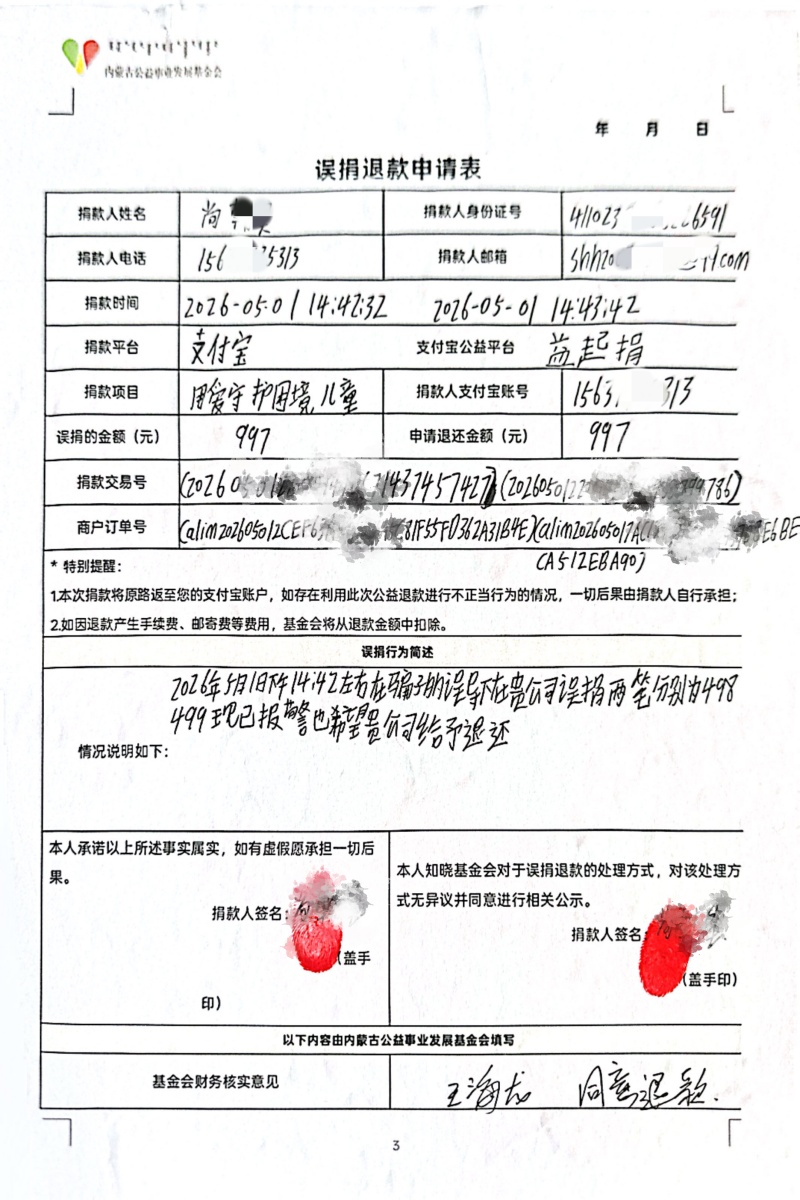 内蒙古公益事业发展基金会
年 月 日
误捐退款申请表
捐款人姓名 尚 捐款人身份证号 411023 6591
捐款人电话 156 5313 捐款人邮箱 shhzo com
捐款时间 2026-05-01 14:42:32 2026-05-01 14:43:42
捐款平台 支付宝 支付宝公益平台 益起捐
捐款项目 用爱守护困境儿童 捐款人支付宝账号 1563 313
误捐的金额（元） 997 申请退还金额（元） 997
捐款交易号 (20260501 71437457427) (2026050122 786)
商户订单号 (alim202605012CEF63 C81F55FD362A31B4E)(alim202605017AC E6BE
CA512EBA90)
* 特别提醒：
1.本次捐款将原路返至您的支付宝账户，如存在利用此次公益退款进行不正当行为的情况，一切后果由捐款人自行承担；
2.如因退款产生手续费、邮寄费等费用，基金会将从退款金额中扣除。
误捐行为简述
2026年5月1日下午14:42左右在骗子的误导下在贵公司误捐两笔分别为498
499现已报警也希望贵公司给予退还
情况说明如下：
本人承诺以上所述事实属实，如有虚假愿承担一切后
果。
捐款人签名：
（盖手
印）
本人知晓基金会对于误捐退款的处理方式，对该处理方
式无异议并同意进行相关公示。
捐款人签名
（盖手印）
以下内容由内蒙古公益事业发展基金会填写
基金会财务核实意见 王海龙 同意退款.
3